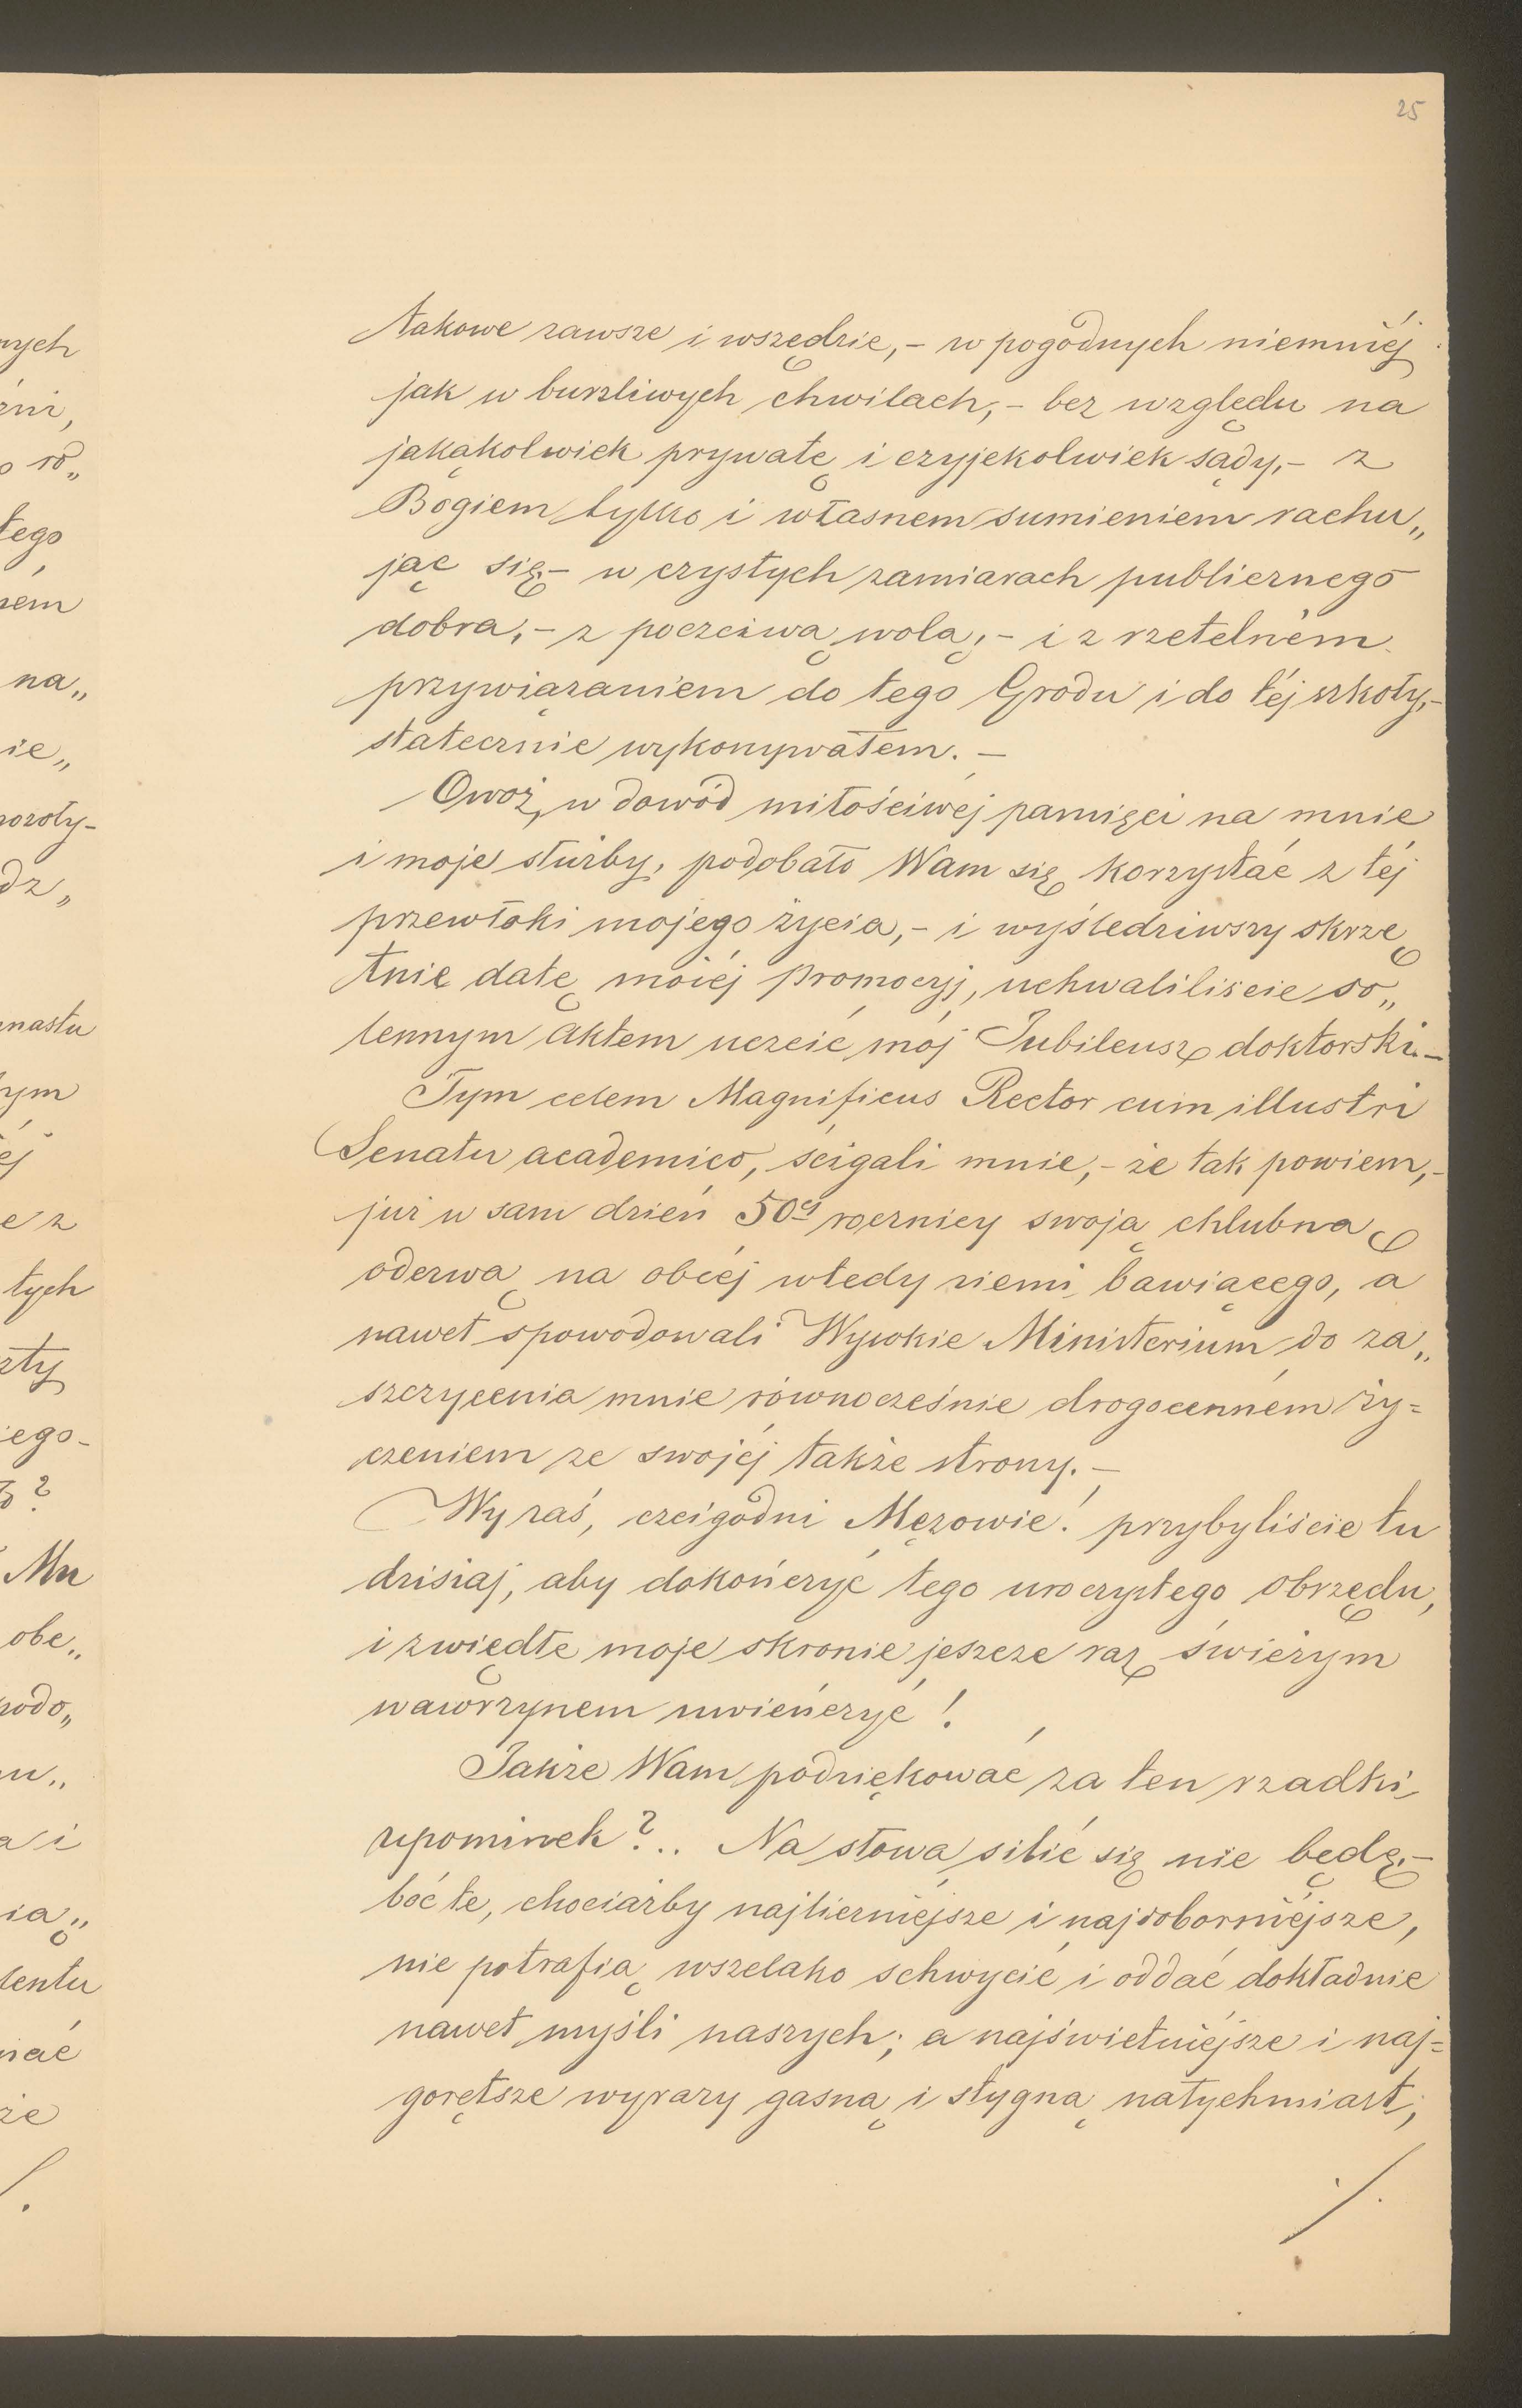 25
takowe zawsze i wszędzie,- w pogodnych niemniéj
jak w burzliwych chwilach,- bez względu na
jakąkolwiek prywatę i czyjekolwiek sądy,- z
Bogiem tylko i własnem sumieniem rachu„
jąc się,- w czystych zamiarach publicznego
dobra,- z poczciwą wolą,- i z rzetelném
przywiązaniem do tego Grodu i do téj szkoły,-
statecznie wykonywałem. -
Owoż, w dowód miłościwéj pamięci na mnie
i moje służby, podobało Wam się korzystać z téj
przewłoki mojego życia,- i wyśledziwszy skrzę
tnie datę moiéj promocyj, uchwaliliście so„
lennym aktem uczcić mój Jubileusz doktorski.-
Tym celem Magnificus Rector cum illustri
Senatu academico, ścigali mnie,- że tak powiem,-
już w sam dzień 50ej rocznicy swoją chlubną
odezwą na obcéj wtedy ziemi bawiącego, a
nawet spowodowali Wysokie Ministerium do za„
szczycenia mnie równocześnie drogocenném ży=
czeniem ze swojéj także strony. -
Wy zaś, czcigodni Mężowie! przybyliście tu
dzisiaj, aby dokończyć tego uroczystego obrzędu,
i zwiędłe moje skronie jeszcze raz świeżym
wawrzynem uwieńczyć!
Jakże Wam podziękować za ten rzadki
upominek?.. Na słowa silić się nie będę,-
boć te, chociażby najlicrniéjsze i najdoborniéjsze,
nie potrafią wszelako schwycić i oddać dokładnie
nawet myśli naszych; a najświetniéjsze i naj=
gorętsze wyrazy gasną i stygną natychmiast,
./.